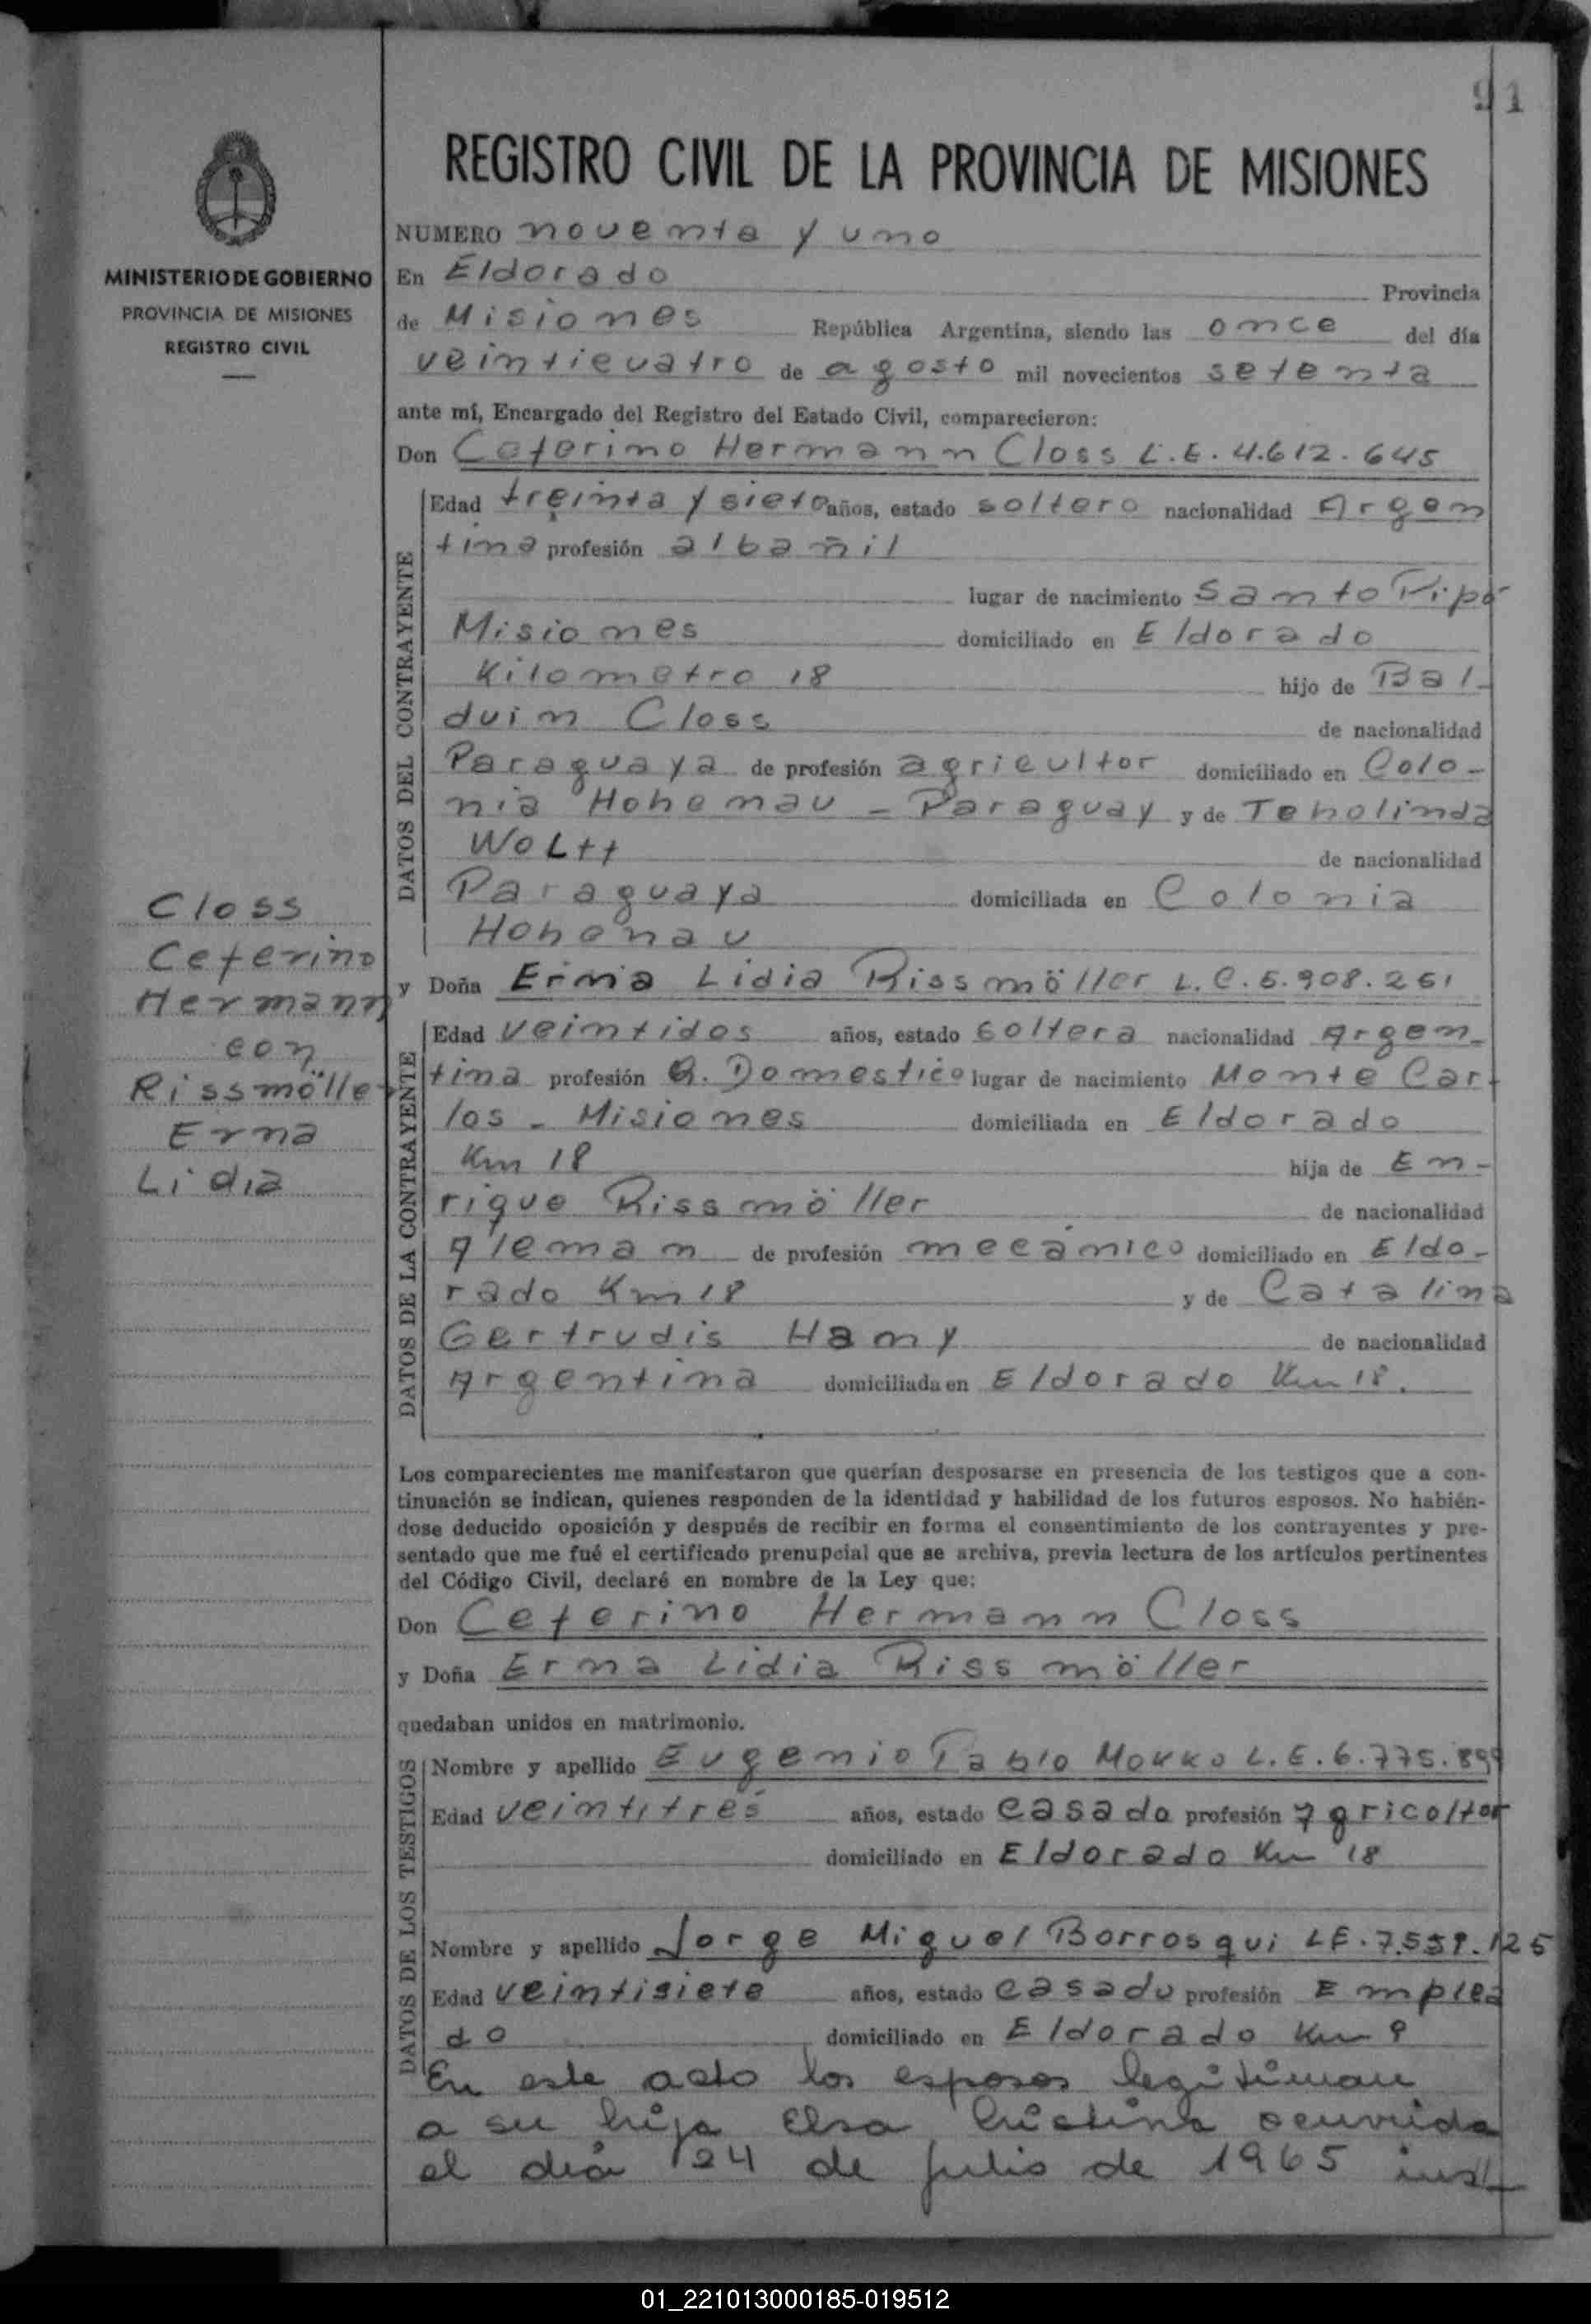 91
REGISTRO CIVIL DE LA PROVINCIA DE MISIONES
MINISTERIO DE GOBIERNO
PROVINCIA DE MISIONES
REGISTRO CIVIL
NUMERO noventa y uno
En Eldorado Provincia
de Misiones República Argentina, siendo las once del día
veinticuatro de agosto mil novecientos setenta
ante mí, Encargado del Registro del Estado Civil, comparecieron:
Don Ceferino Hermann Closs L.E. 4.612.645
DATOS DEL CONTRAYENTE
Edad treinta y siete años, estado soltero nacionalidad Argen
tina profesión albañil
lugar de nacimiento Santo Pipó
Misiones domiciliado en Eldorado
Kilometro 18 hijo de Bal-
duin Closs de nacionalidad
Paraguaya de profesión agricultor domiciliado en Colo-
nia Hohenau - Paraguay y de Teholinda
Woltt de nacionalidad
Paraguaya domiciliada en Colonia
Hohenau
Closs
Ceferino
Hermann
con
Rissmölle
Erna
Lidia
y Doña Erna Lidia Rissmöller L.C. 5.908.251
DATOS DE LA CONTRAYENTE
Edad veintidos años, estado soltera nacionalidad Argen-
tina profesión Q. Domestico lugar de nacimiento Monte Car-
los - Misiones domiciliada en Eldorado
Km 18 hija de En-
rique Rissmöller de nacionalidad
Aleman de profesión mecánico domiciliado en Eldo-
rado Km 18 y de Catalina
Gertrudis Hamy de nacionalidad
Argentina domiciliada en Eldorado Km 18.
Los comparecientes me manifestaron que querían desposarse en presencia de los testigos que a con-
tinuación se indican, quienes responden de la identidad y habilidad de los futuros esposos. No habién-
dose deducido oposición y después de recibir en forma el consentimiento de los contrayentes y pre-
sentado que me fué el certificado prenupcial que se archiva, previa lectura de los artículos pertinentes
del Código Civil, declaré en nombre de la Ley que:
Don Ceferino Hermann Closs
y Doña Erna Lidia Rissmöller
quedaban unidos en matrimonio.
DATOS DE LOS TESTIGOS
Nombre y apellido Eugenio Pablo Mokko L.E. 6.775.899
Edad veintitres años, estado casado profesión Agricoltor
domiciliado en Eldorado Km 18
Nombre y apellido Jorge Miguel Borrosqui LE. 7.559.125
Edad veintisiete años, estado casado profesión Emplea
do domiciliado en Eldorado Km 9
En este acto los esposos legitiman
a su hija Elsa Cristina ocurrida
el dia 24 de julio de 1965 inst
01_221013000185-019512